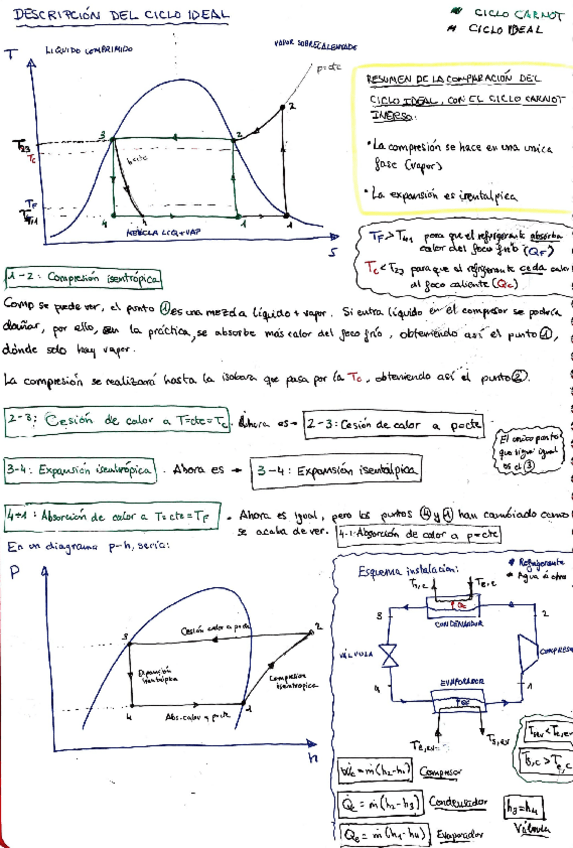 DESCRIPCIÓN DEL CICLO IDEAL
CICLO CARNOT
CICLO IDEAL
T
LIQUIDO COMPRIMIDO
VAPOR SOBRECALENTADO
p=cte
2
3
2
T23
Tc
h=cte
TF
T41
4
4
1
1
MEZCLA LIQ+VAP
S
RESUMEN DE LA COMPARACIÓN DEL
CICLO IDEAL, CON EL CICLO CARNOT
INVERSO:
• La compresión se hace en una unica
fase (vapor)
• La expansión es isentálpica
TF > T41 para que el refrigerante absorba
calor del foco frío (QF)
Tc < T23 para que el refrigerante ceda calor
al foco caliente (Qc)
1-2: Compresión isentrópica
Como se puede ver, el punto 1 es una mezcla líquido + vapor. Si entra líquido en el compresor se podría
dañar, por ello, en la práctica, se absorbe más calor del foco frío, obteniendo así el punto 1,
dónde solo hay vapor.
La compresión se realizará hasta la isobara que pasa por la Tc, obteniendo así el punto 2.
2-3: Cesión de calor a T=cte=Tc. Ahora es → 2-3: Cesión de calor a p=cte
El único punto
que sigue igual
es el 3
3-4: Expansión isentrópica. Ahora es → 3-4: Expansión isentálpica
4-1: Absorción de calor a T=cte=TF. Ahora es igual, pero los puntos 4 y 1 han cambiado como
se acaba de ver. 4-1: Absorción de calor a p=cte
En un diagrama p-h, sería:
P
3
Cesión calor a p=cte
2
Expansión
isentálpica
Compresión
isentrópica
4
Abs. calor a p=cte
1
h
Esquema instalación:
Refrigerante
Agua ú otro
Ts,c
Te,c
Qc
3
CONDENSADOR
2
VÁLVULA
COMPRESOR
4
EVAPORADOR
1
Te,ev
Ts,ev
Ts,ev < Te,ev
Ts,c > Te,c
Ẇc = ṁ(h2-h1) Compresor
Q̇c = ṁ(h2-h3) Condensador
h3=h4
Válvula
Q̇e = ṁ(h1-h4) Evaporador